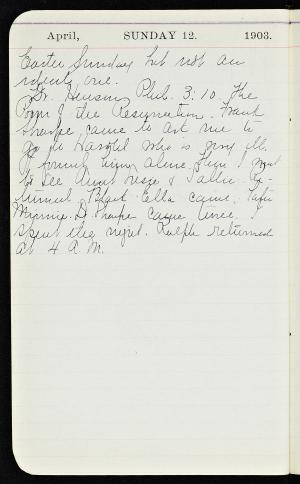 April, SUNDAY 12. 1903.
Easter Sunday but not an
ideal one.
Dr. Henson Phil. 3:10. The
Power of the Resurrection. Frank
Sharpe came to ask me to
go to Harold who is very ill.
I found him alone then. I went
to see Aunt & Sallie. Re-
turned. Ella came. Later
Minnie D. Sharpe came twice. I
spent the night. Ralph returned
at 4 A.M.